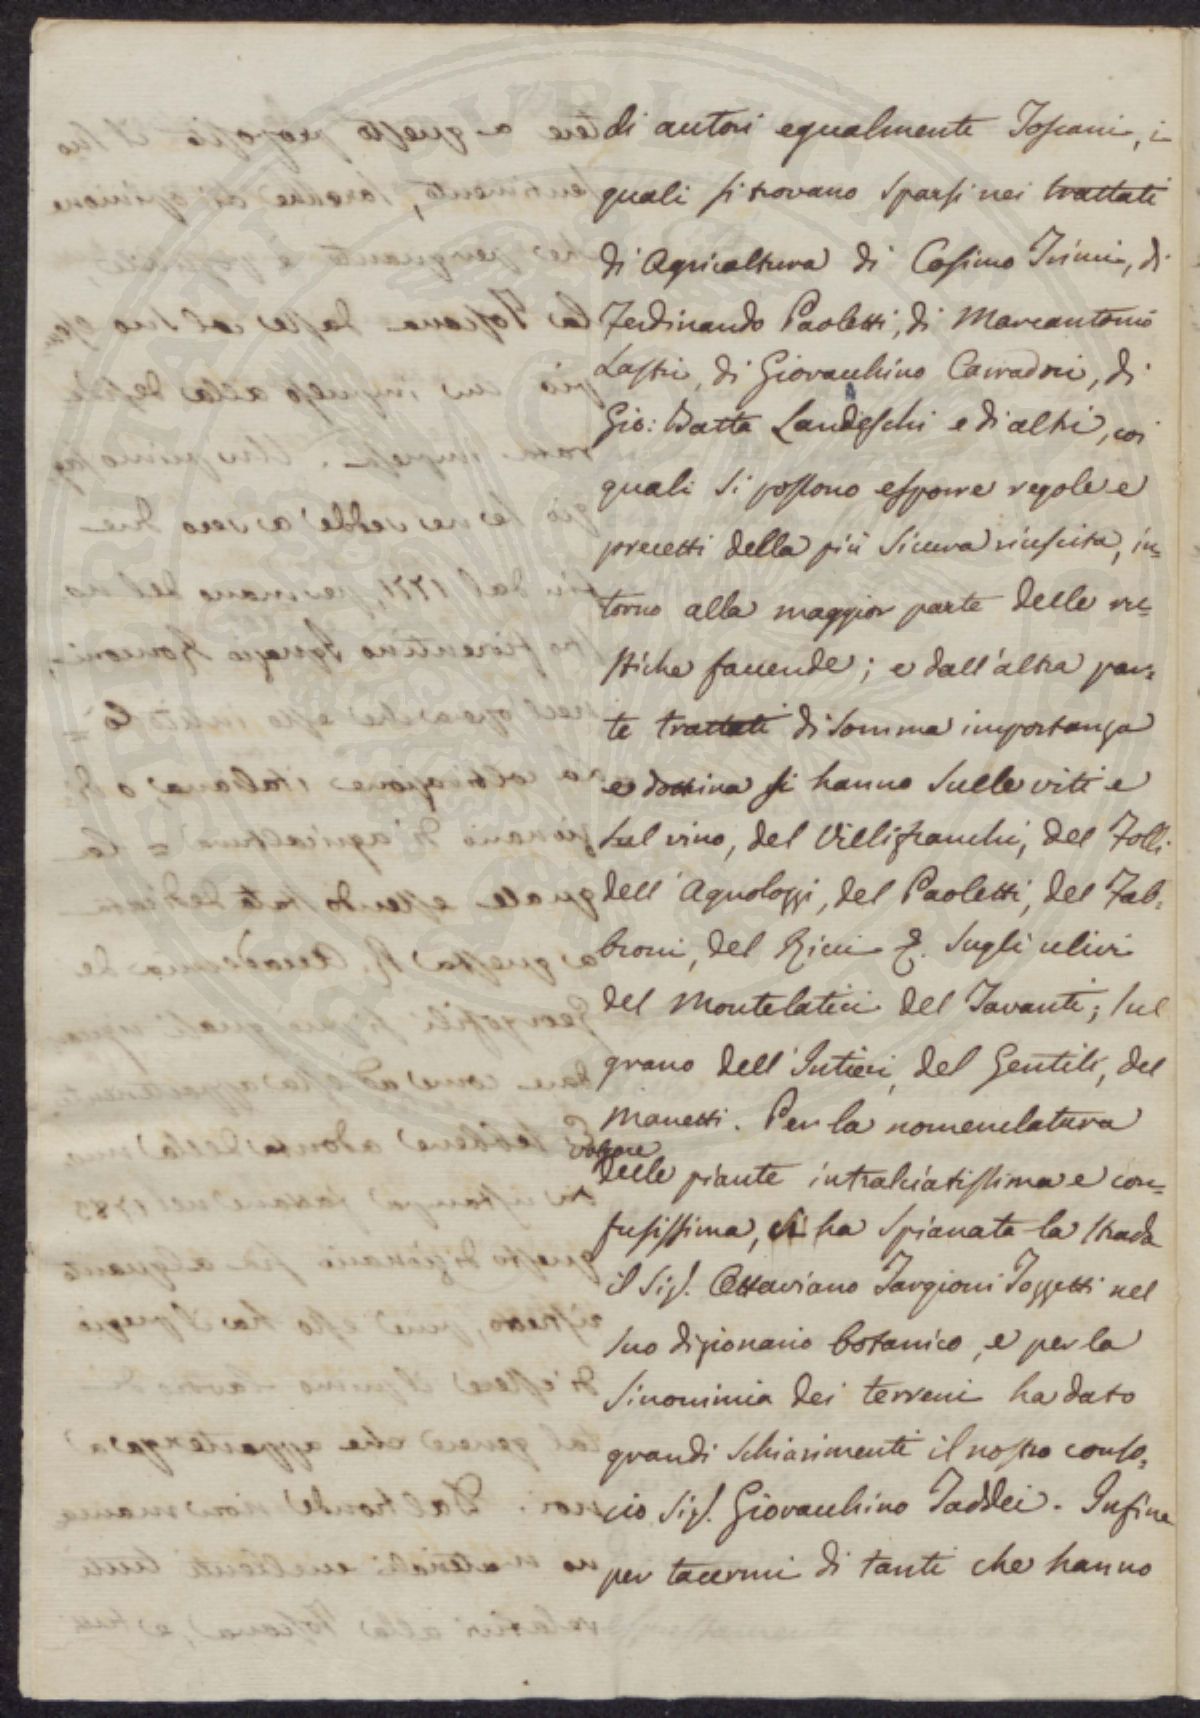 di autori egualmente Toscani, i
quali si trovano sparsi nei trattati
di Agricoltura di Cosimo Trinci, di
Ferdinando Paoletti, di Marcantonio
Lastri, di Giovacchino Carradori, di
Gio: Batta Landeschi e di altri, coi
quali si possono esporre regole e
precetti della più sicura riuscita, in=
torno alla maggior parte delle ru=
stiche faccende; e dall'altra par=
te trattati di somma importanza
e dottrina si hanno sulle viti e
sul vino, del Villifranchi, del Folli
dell'Agnolozzi, del Paoletti, del Fab=
broni, del Ricci &. Sugli ulivi
del Montelatici del Tavanti; sul
grano dell'Intieri, del Gentili, del
Manetti. Per la nomenclatura
volgare
delle piante intralciatissima e con=
fusissima, ha spianata la strada
il Sig.r Ottaviano Targioni Tozzetti nel
suo dizionario botanico, e per la
sinonimia dei terreni ha dato
grandi schiarimenti il nostro conso=
cio Sig.r Giovacchino Taddei. Infine
per tacermi di tanti che hanno